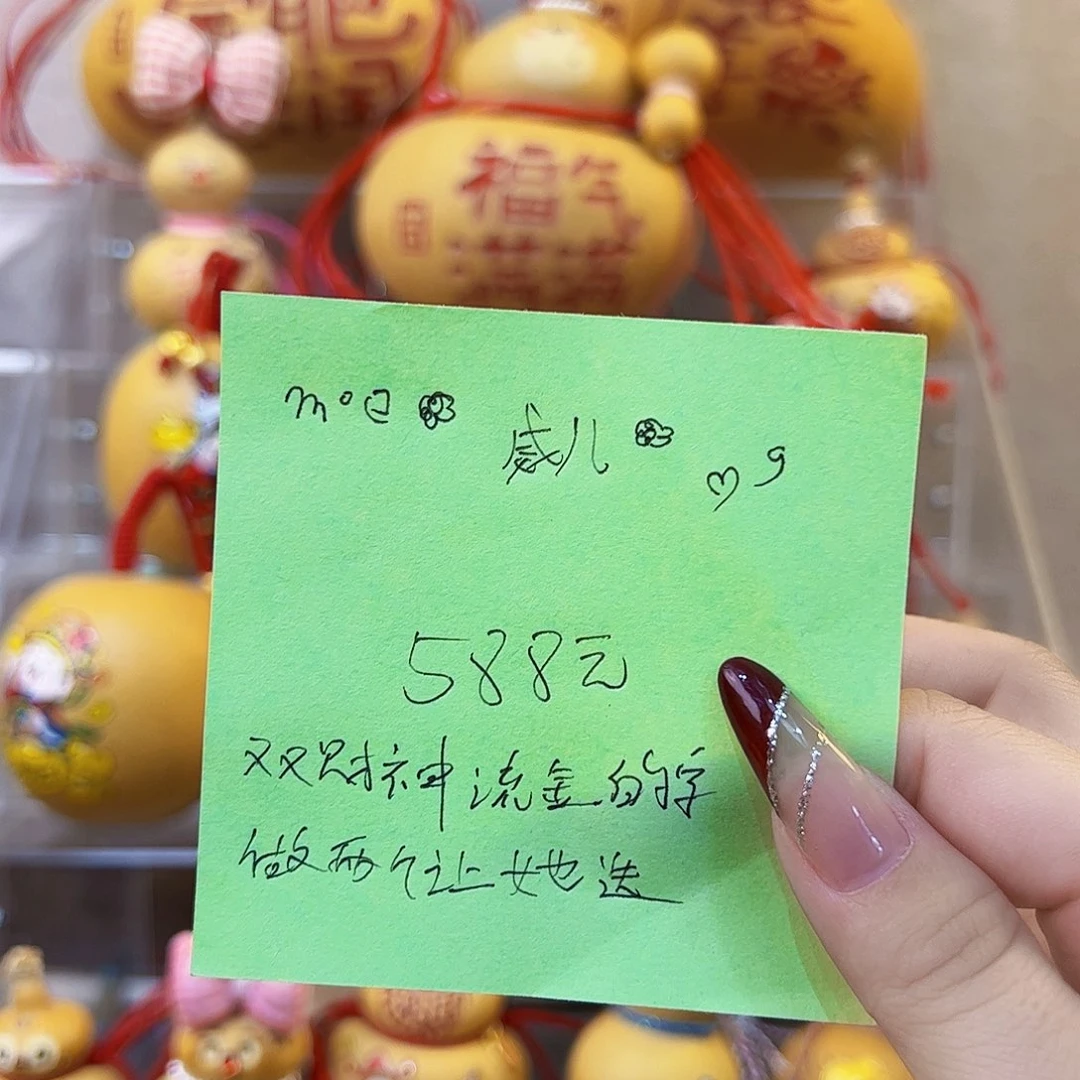 福气
满满
m°已 威儿 9
588元
双财神流金的字
做两个让她选